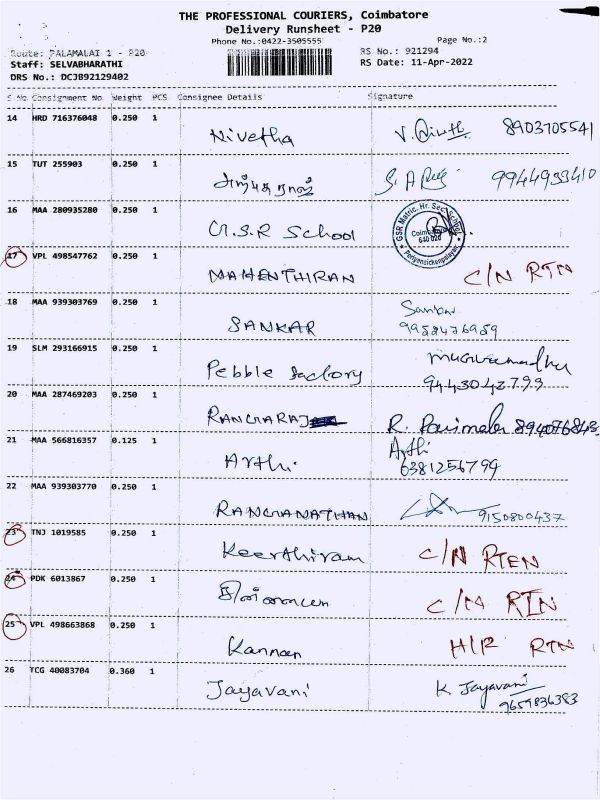 THE PROFESSIONAL COURIERS, Coimbatore
Delivery Runsheet - P20
Phone No.:0422-3505555 Page No.:2
Route: PALAMALAI 1 - P20 RS No.: 921294
Staff: SELVABHARATHI RS Date: 11-Apr-2022
DRS No.: DCJB92129402
S No Consignment No Weight PCS Consignee Details Signature
14 HRD 716376048 0.250 1 Nivetha 8903705541
15 TUT 255903 0.250 1 9944933410
16 MAA 280935280 0.250 1 G.S.R School GSR Matric. Hr. Sec. School Periyanaickenpalayam
17 VPL 498547762 0.250 1 MAHENTHIRAN C/N RTN
18 MAA 939303769 0.250 1 SANKAR Sankar
9952476959
19 SLM 293166915 0.250 1 Pebble factory
9443042799
20 MAA 287469203 0.250 1 RANGARAJ R. Parimala
21 MAA 566816357 0.125 1 Arthi. Arthi
6381256799
22 MAA 939303770 0.250 1 RANGANATHAN 9150800437
23 TNJ 1019585 0.250 1 Keerthiram C/N RTEN
24 PDK 6013867 0.250 1 C/N RTN
25 VPL 498663868 0.250 1 Kannan RTN
26 TCG 40083704 0.360 1 Jayavani K Jayavani
9659836383